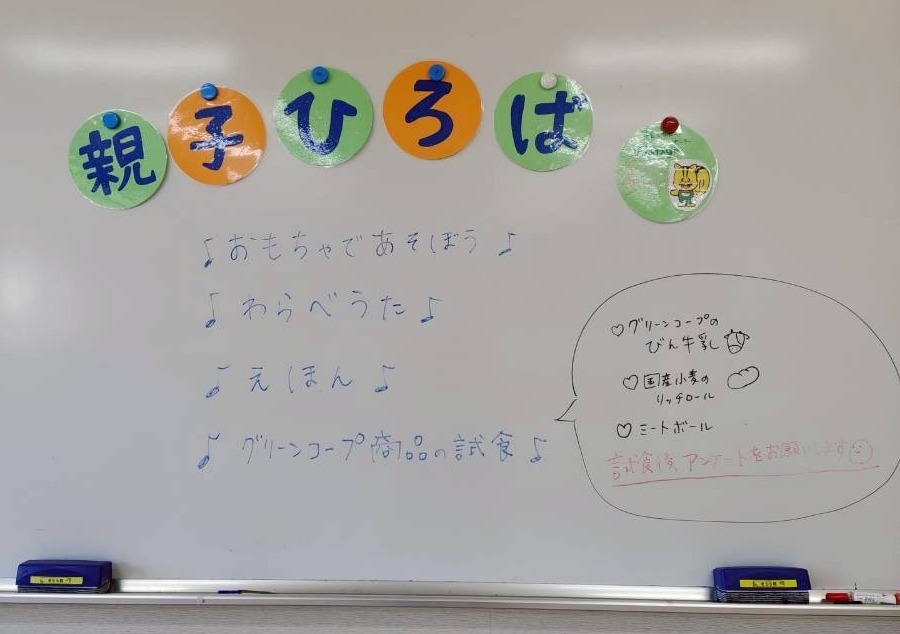 親子ひろば
♪おもちゃであそぼう♪
♪わらべうた♪
♪えほん♪
♪グリーンコープ商品の試食♪
♡グリーンコープの
びん牛乳
♡国産小麦の
リッチロール
♡ミートボール
試食後、アンケートをお願いします